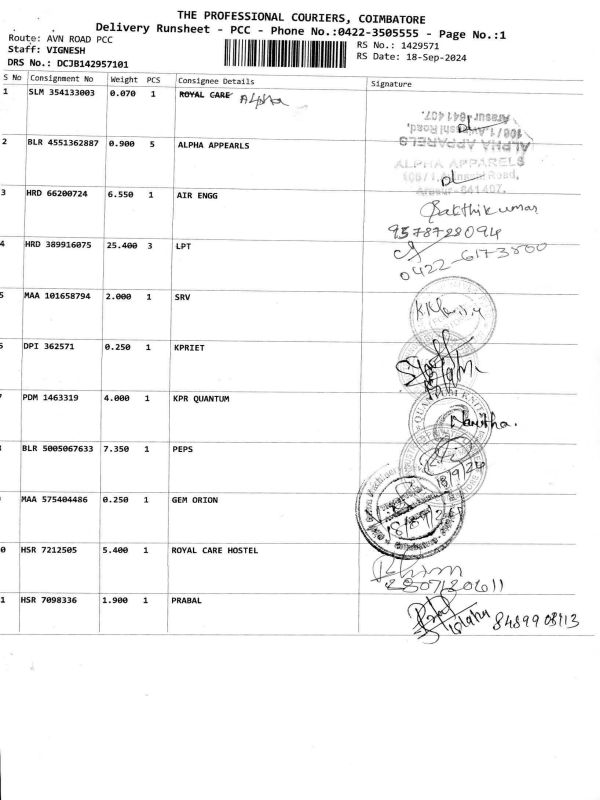 THE PROFESSIONAL COURIERS, COIMBATORE
Delivery Runsheet - PCC - Phone No.:0422-3505555 - Page No.:1
Route: AVN ROAD PCC
Staff: VIGNESH
DRS No.: DCJB142957101
RS No.: 1429571
RS Date: 18-Sep-2024
S No Consignment No Weight PCS Consignee Details Signature
1 SLM 354133003 0.070 1 ROYAL CARE Alpha
Arasur 641 407.
ALPHA APPARELS
2 BLR 4551362887 0.900 5 ALPHA APPEARLS
ALPHA APPARELS
Arasur - 641407.
3 HRD 66200724 6.550 1 AIR ENGG Sakthikumar
4 HRD 389916075 25.400 3 LPT
0422-6173800
5 MAA 101658794 2.000 1 SRV
DPI 362571 0.250 1 KPRIET
PDM 1463319 4.000 1 KPR QUANTUM
BLR 5005067633 7.350 1 PEPS
18/9/24
MAA 575404486 0.250 1 GEM ORION
0 HSR 7212505 5.400 1 ROYAL CARE HOSTEL
1 HSR 7098336 1.900 1 PRABAL